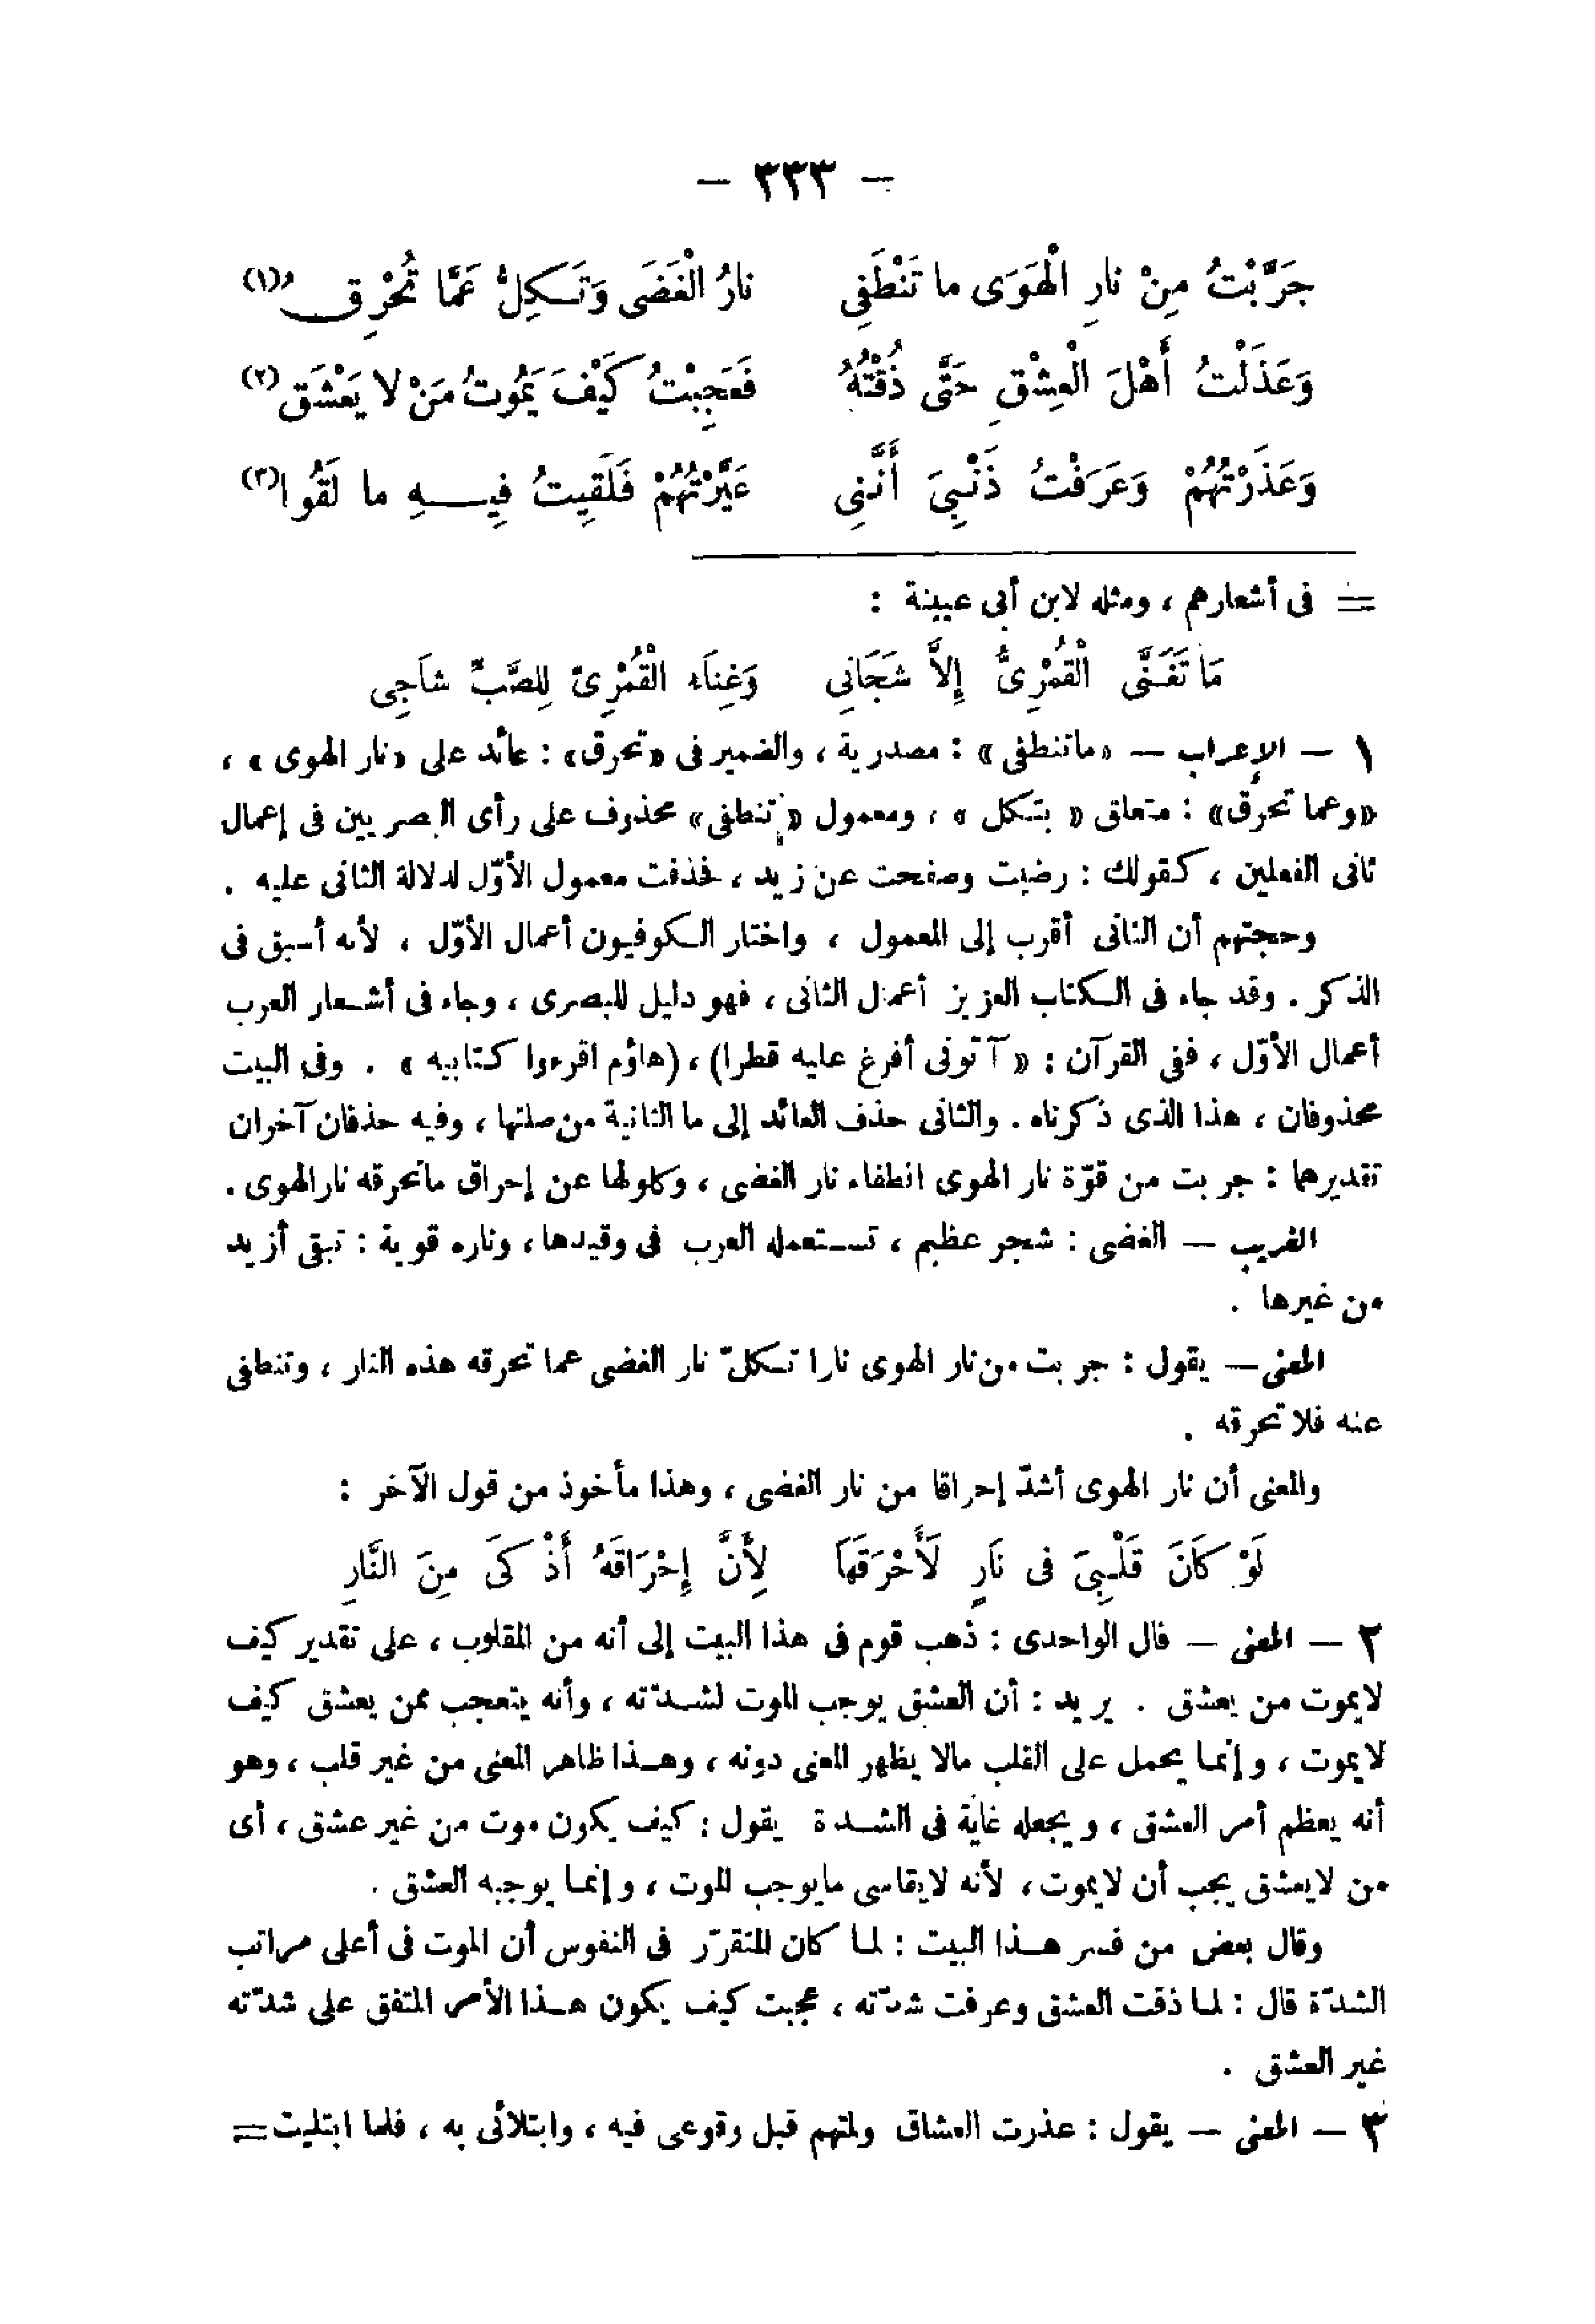 — ٣٣٣ —
جَرَّبْتُ مِنْ نارِ الْهَوَى ما تَنْطَفِى نارُ الْغَضَى وَتَكِلُّ عَمَّا تُحْرِقُ(١)
وَعَذَلْتُ أَهْلَ الْعِشْقِ حَتَّى ذُقْتُهُ فَعَجِبْتُ كَيْفَ يَمُوتُ مَنْ لا يَعْشَق(٢)
وَعَذَرْتُهُمْ وَعَرَفْتُ ذَنْبِىَ أَنَّنِى عَيَّرْتُهُمْ فَلَقِيتُ فِيهِ ما لَقُوا(٣)
= فى أشعارهم ، ومثله لابن أبى عيينة :
مَا تَغَنَّى الْقُمْرِىُّ إِلاَّ شَجَانِى وَغِنَاء الْقُمْرِىّ لِلصَّبِّ شاَجِى
١ — الإعراب — «ماتنطفى» : مصدرية ، والضمير فى «تحرق» : عائد على «نار الهوى» ،
«وعما تحرق» : متعلق « بتكل » ، ومعمول « تنطفى» محذوف على رأى البصريين فى إعمال
ثانى الفعلين ، كقولك : رضيت وصفحت عن زيد ، فحذفت معمول الأوّل لدلالة الثانى عليه .
وحجتهم أن الثانى أقرب إلى المعمول ، واختار الكوفيون أعمال الأوّل ، لأنه أسبق فى
الذكر . وقد جاء فى الكتاب العزيز أعمال الثانى ، فهو دليل للبصرى ، وجاء فى أشعار العرب
أعمال الأوّل ، ففى القرآن : « آتونى أفرغ عليه قطرا) ، (هاؤم اقرءوا كتابيه » . وفى البيت
محذوفان ، هذا الذى ذكرناه . والثانى حذف العائد إلى ما الثانية من صلتها ، وفيه حذفان آخران
تقديرهما : جربت من قوّة نار الهوى انطفاء نار الغضى ، وكلولها عن إحراق ماتحرقه نار الهوى .
الغريب — الغضى : شجر عظيم ، تستعمله العرب فى وقيدها ، وناره قوية : تبقى أزيد
من غيرها .
المعنى — يقول : جربت من نار الهوى نارا تكلّ نار الغضى عما تحرقه هذه النار ، وتنطفى
عنه فلا تحرقه .
والمعنى أن نار الهوى أشدّ إحراقا من نار الغضى ، وهذا مأخوذ من قول الآخر :
لَوْ كَانَ قَلْبِىَ فى نَارٍ لَأَحْرَقَهَا لِأَنَّ إِحْرَاقَهُ أَذْكَى مِنَ النَّارِ
٢ — المعنى — قال الواحدى : ذهب قوم فى هذا البيت إلى أنه من المقلوب ، على تقدير كيف
لايموت من يعشق . يريد : أن العشق يوجب الموت لشدّته ، وأنه يتعجب ممن يعشق كيف
لايموت ، وإنما يحمل على القلب مالا يظهر المعنى دونه ، وهذا ظاهر المعنى من غير قلب ، وهو
أنه يعظم أمر العشق ، ويجعله غاية فى الشدة يقول : كيف يكون موت من غير عشق ، أى
من لايعشق يجب أن لايموت ، لأنه لايقاسى مايوجب الموت ، وإنما يوجبه العشق .
وقال بعض من فسر هذا البيت : لما كان المتقرّر فى النفوس أن الموت فى أعلى مراتب
الشدّة قال : لما ذقت العشق وعرفت شدّته ، عجبت كيف يكون هذا الأمر المتفق على شدّته
غير العشق .
٣ — المعنى — يقول : عذرت العشاق ولمتهم قبل وقوعى فيه ، وابتلائى به ، فلما ابتليت =